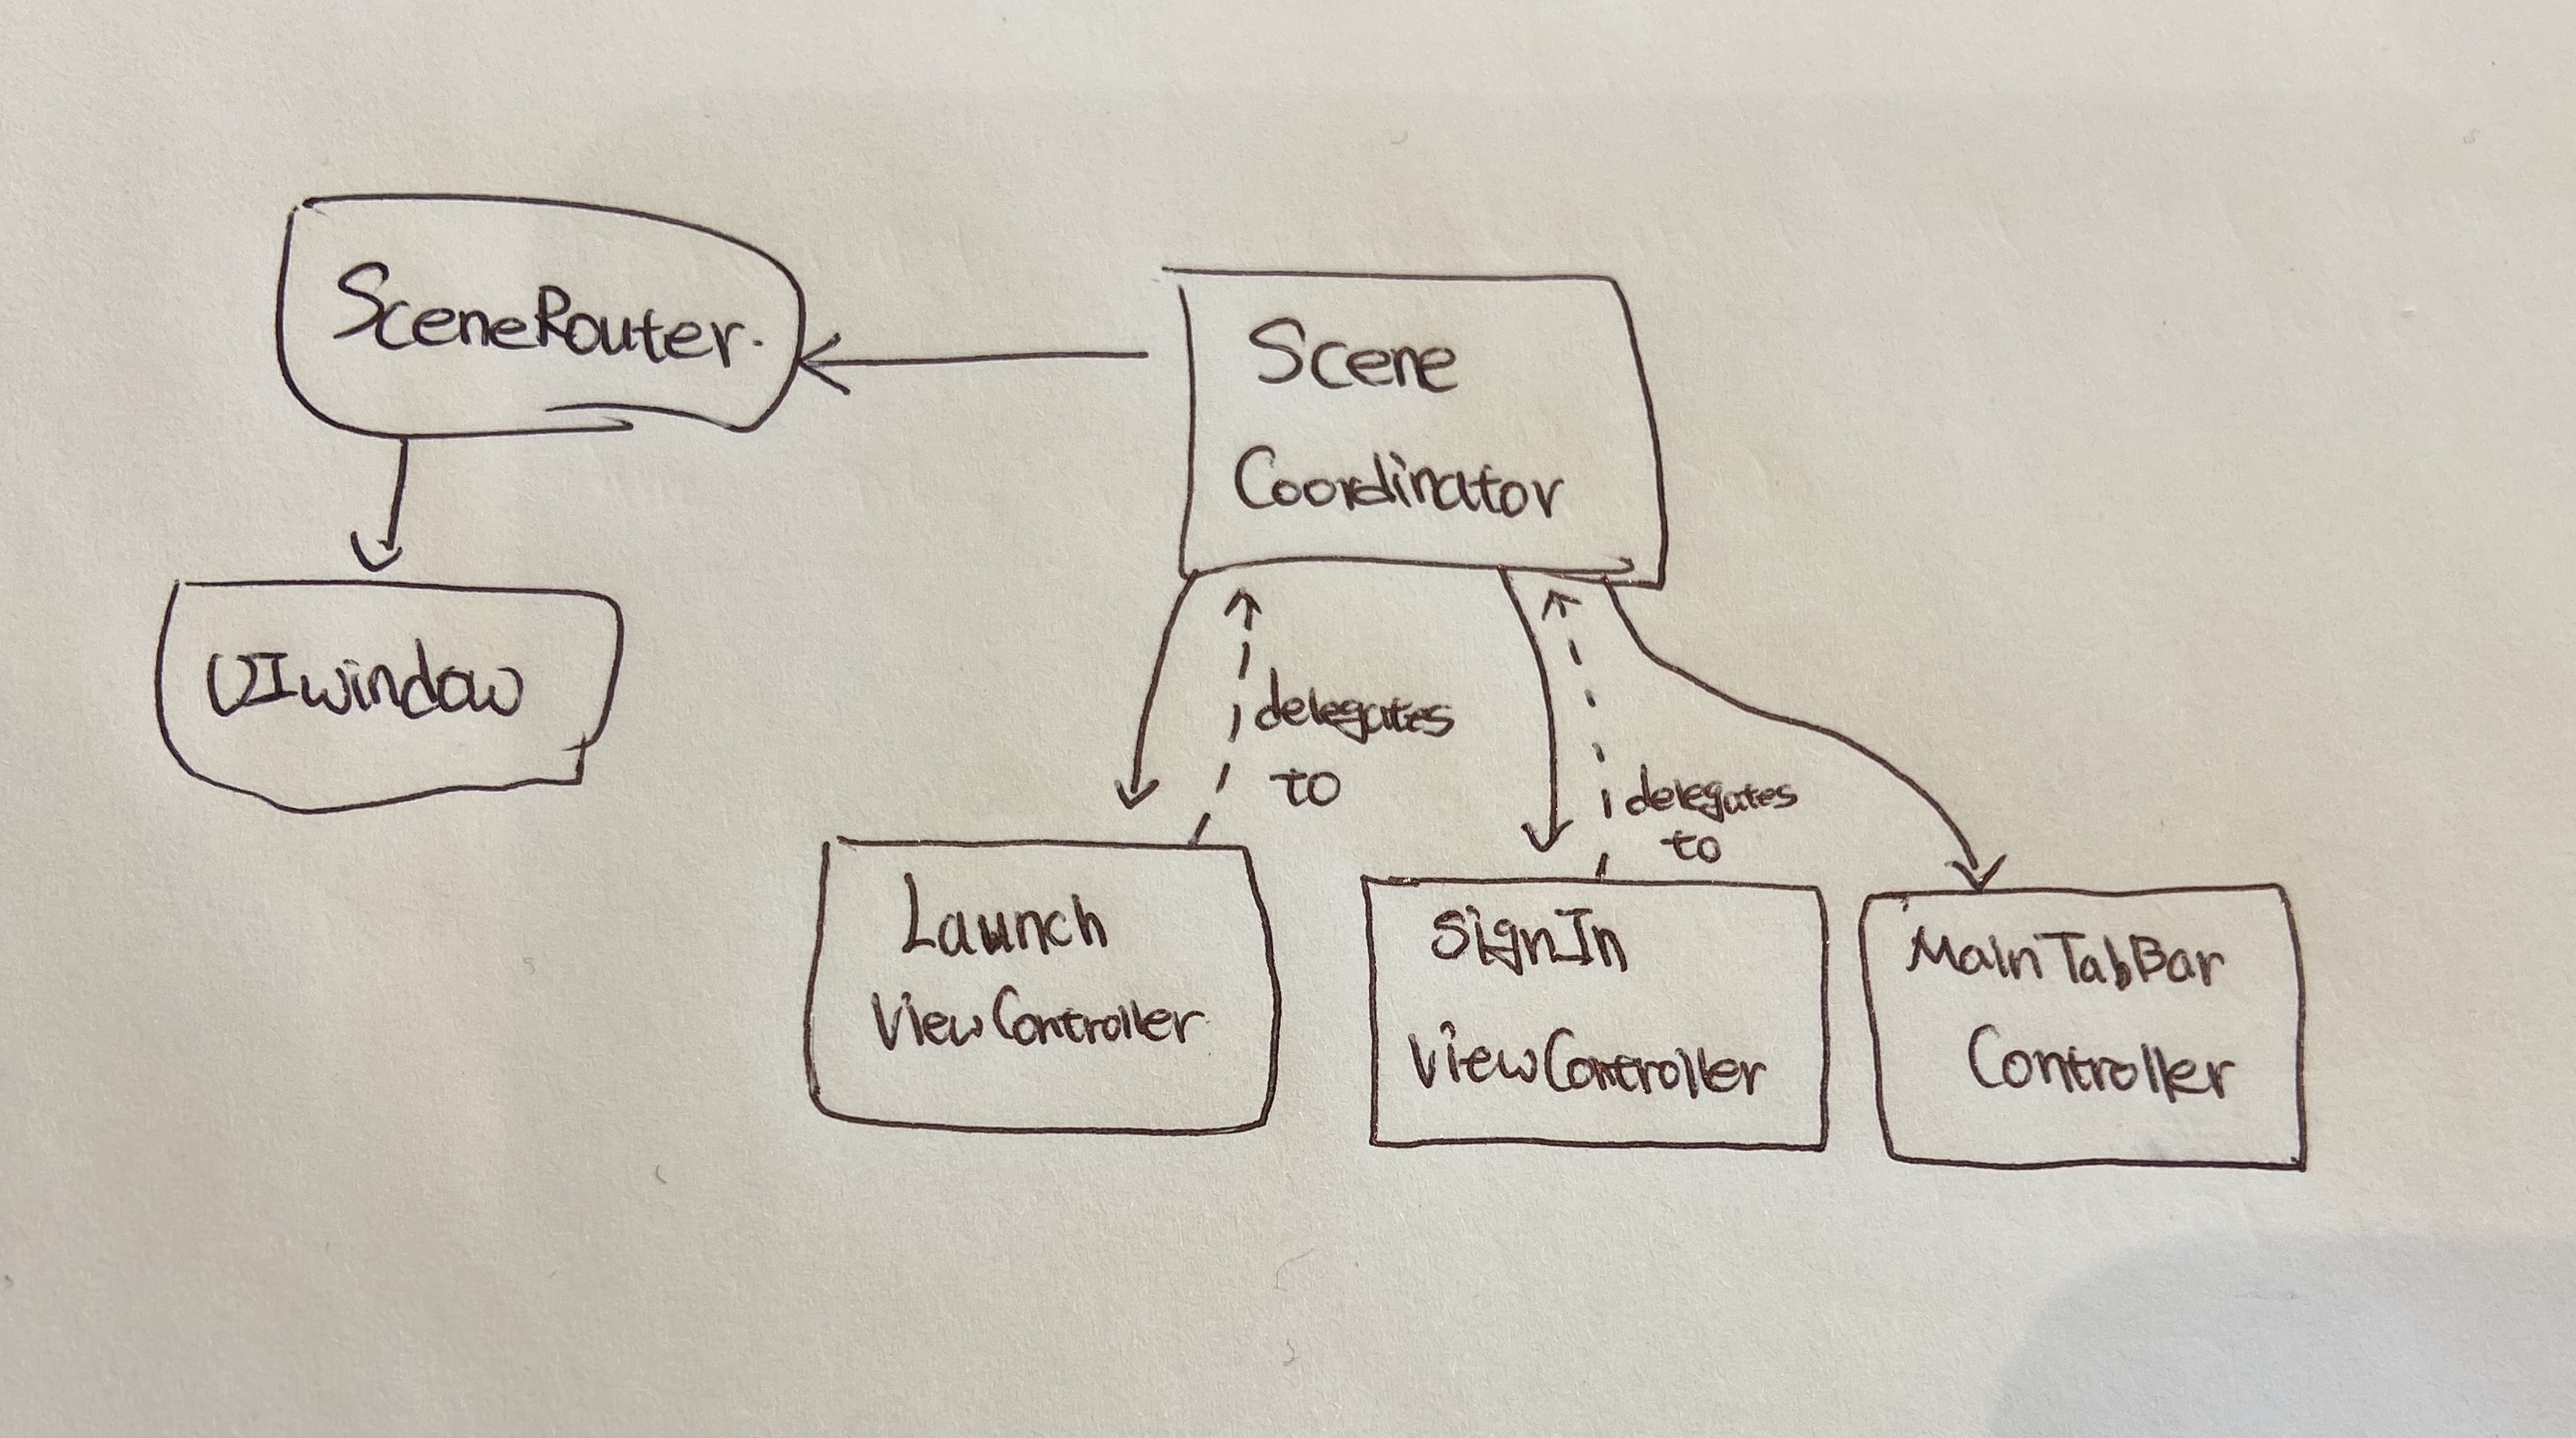 SceneRouter.
Scene
Coordinator
UIwindow
delegates
to
delegates
to
Launch
ViewController
SignIn
ViewController
MainTabBar
Controller